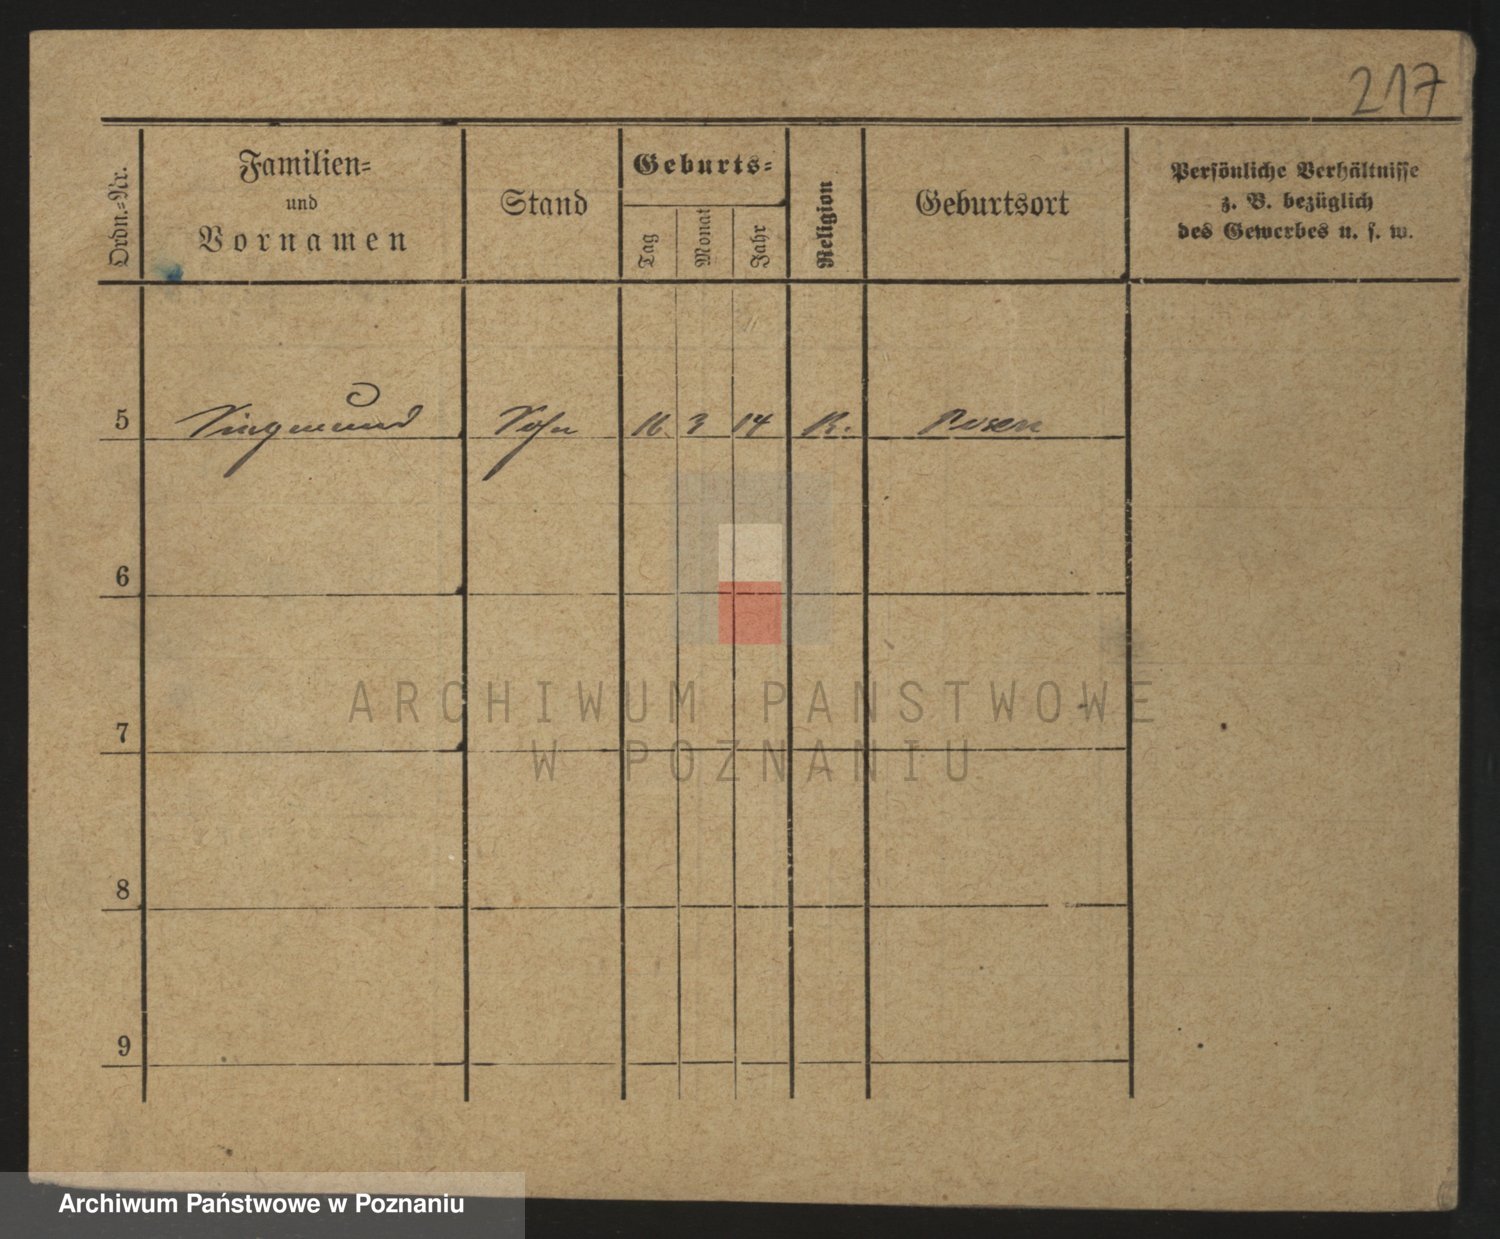 217
Ordn.-Nr.
Familien-
und
Vornamen
Stand
Geburts-
Tag
Monat
Jahr
Religion
Geburtsort
Persönliche Verhältnisse
z. B. bezüglich
des Gewerbes u. s. w.
5 Siegmund Sohn 16. 3 14 K. Posen
6
7
8
9
ARCHIWUM PANSTWOWE
W POZNANIU
Archiwum Państwowe w Poznaniu